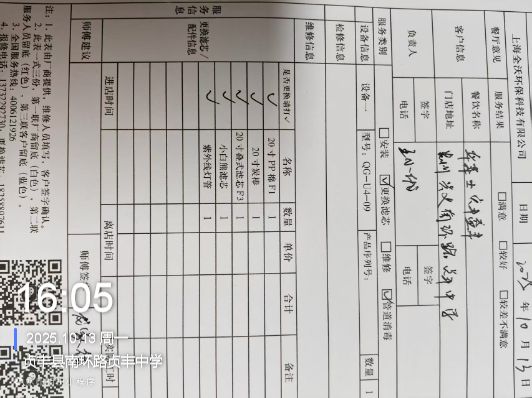 上海全沃环保科技有限公司
日期 2025年10月13日
餐厅意见 服务结果 □满意 □较好 □较差不满意
客户信息 餐饮名称
门店地址
负责人 签字 签字
电话 电话
服务类别 □安装 ☑更换滤芯 □维修 ☑管道消毒
设备信息 设备一 型号:QG-U4-09 产品序列号: 数量 1
检修信息
维修信息
服务信息
更换滤芯/配件信息
是否更换请打✓ 名称 数量 单价 合计 备注
✓ 20寸PP棉F1 1
✓ 20寸炭棒 1
✓ 20寸叠式滤芯F3 1
✓ 小白熊滤芯 1
✓ 紫外线灯管 1
进店时间 离店时间
师傅建议 师傅签
注:1、此表由厂商提供,维修人员填写,客户签字确认。
2、此表一式三份,第一联厂商留底(白色),第二联
服务人员留底(红色),第三联客户留底(蓝色)。
3、全国服务热线:4006121972
4、报修电话:
16:05
2025.10.13 周一
贞丰县南环路贞丰中学